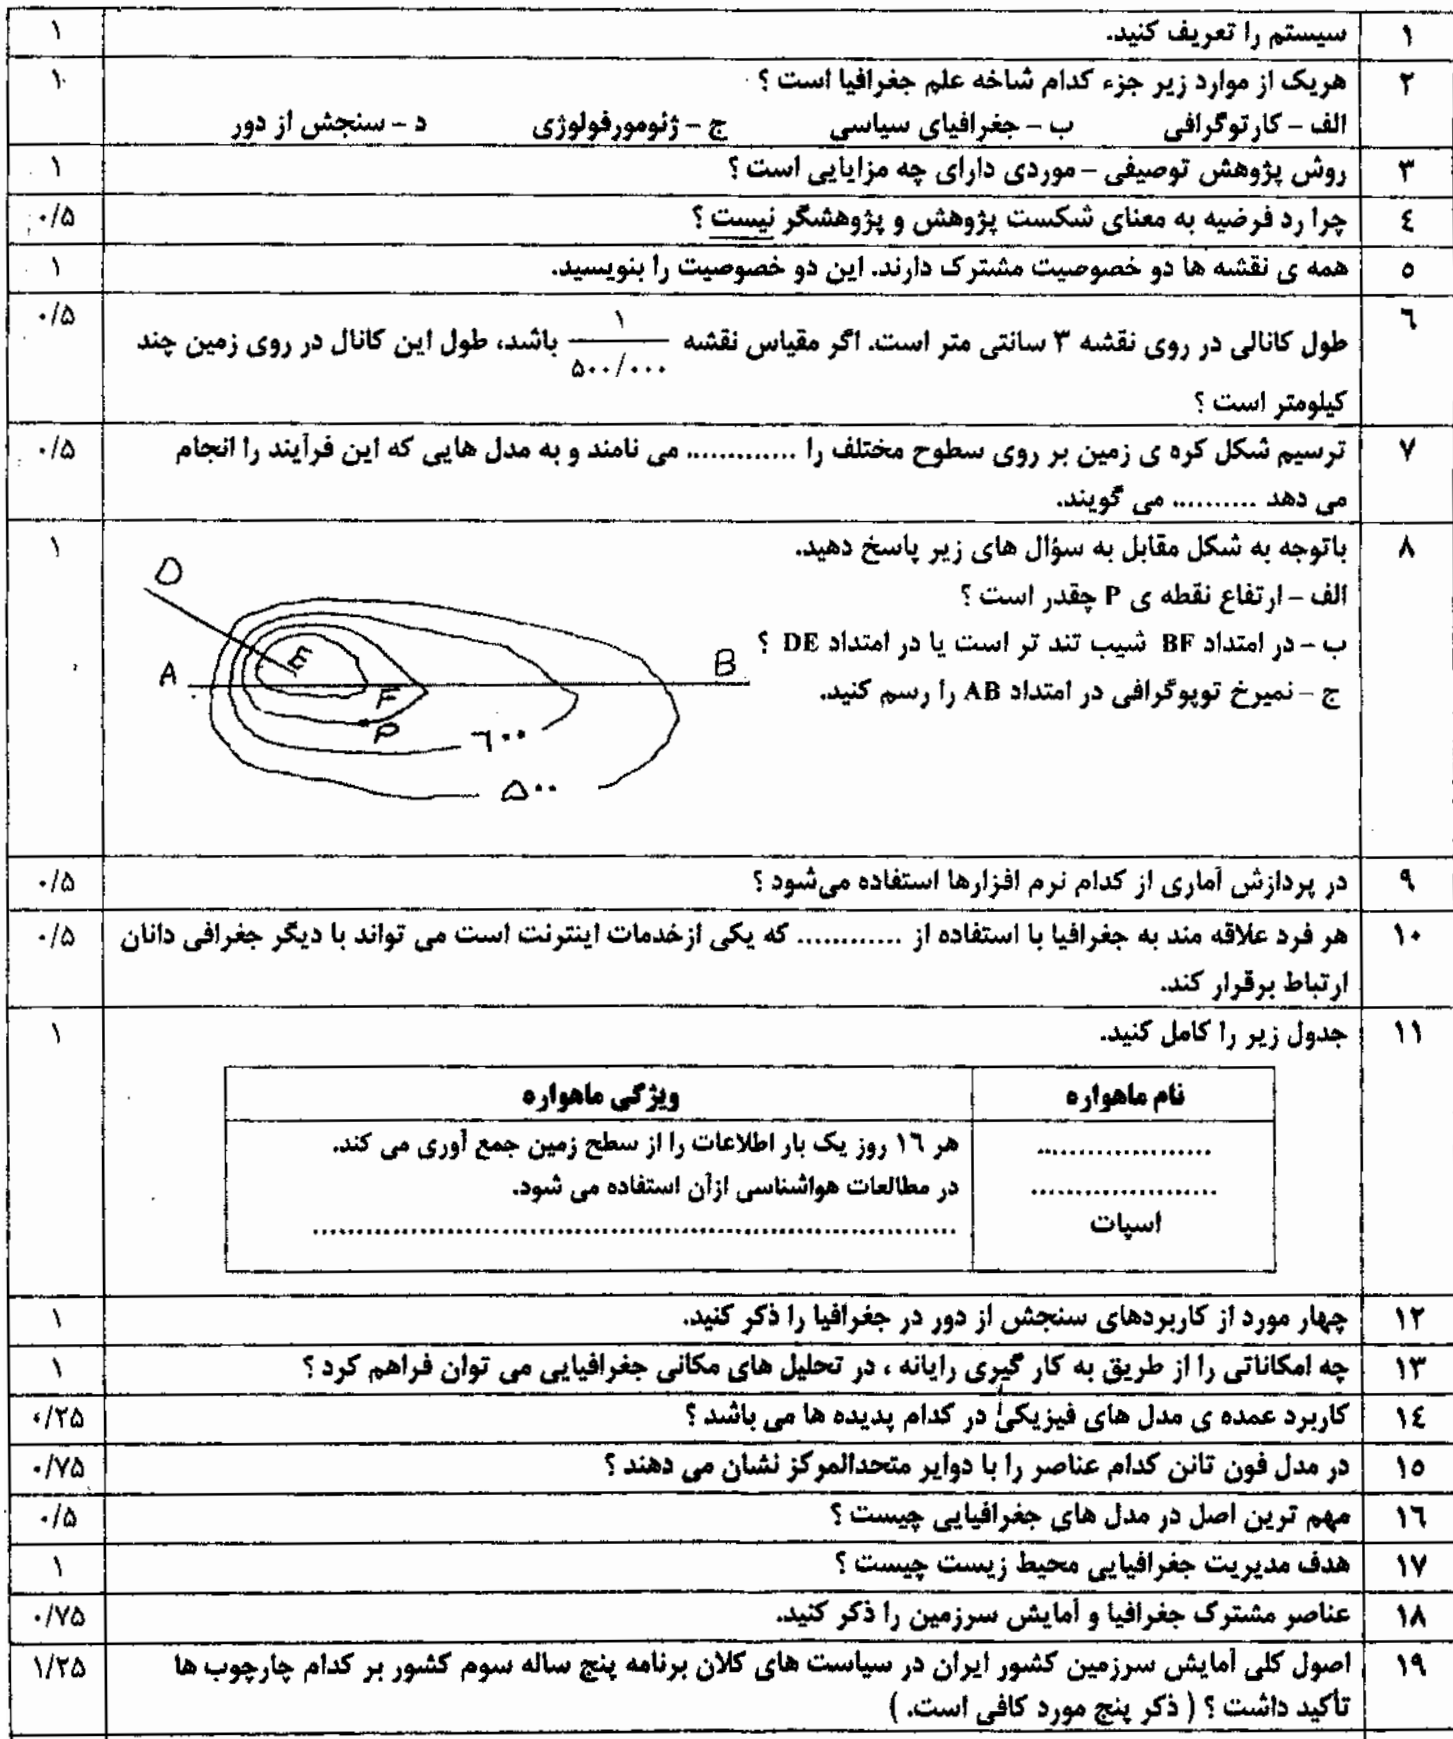 ۱ سیستم را تعریف کنید. ۱
۲ هریک از موارد زیر جزء کدام شاخه علم جغرافیا است ؟ ۱
الف – کارتوگرافی ب – جغرافیای سیاسی ج – ژئومورفولوژی د – سنجش از دور
۳ روش پژوهش توصیفی – موردی دارای چه مزایایی است ؟ ۱
٤ چرا رد فرضیه به معنای شکست پژوهش و پژوهشگر نیست ؟ ۰/۵
٥ همه ی نقشه ها دو خصوصیت مشترک دارند. این دو خصوصیت را بنویسید. ۱
٦ طول کانالی در روی نقشه ۳ سانتی متر است. اگر مقیاس نقشه ۱ / ۵۰۰/۰۰۰ باشد، طول این کانال در روی زمین چند ۰/۵
کیلومتر است ؟
۷ ترسیم شکل کره ی زمین بر روی سطوح مختلف را ............. می نامند و به مدل هایی که این فرآیند را انجام ۰/۵
می دهد .......... می گویند.
۸ باتوجه به شکل مقابل به سؤال های زیر پاسخ دهید. ۱
الف – ارتفاع نقطه ی P چقدر است ؟
ب – در امتداد BF شیب تند تر است یا در امتداد DE ؟
ج – نمیرخ توپوگرافی در امتداد AB را رسم کنید.
D
E
A
B
F
P
٦۰۰
۵۰۰
۹ در پردازش آماری از کدام نرم افزارها استفاده می‌شود ؟ ۰/۵
۱۰ هر فرد علاقه مند به جغرافیا با استفاده از ............ که یکی ازخدمات اینترنت است می تواند با دیگر جغرافی دانان ۰/۵
ارتباط برقرار کند.
۱۱ جدول زیر را کامل کنید. ۱
نام ماهواره ویژگی ماهواره
.................... هر ۱٦ روز یک بار اطلاعات را از سطح زمین جمع آوری می کند.
.................... در مطالعات هواشناسی ازآن استفاده می شود.
اسپات ....................................................................
۱۲ چهار مورد از کاربردهای سنجش از دور در جغرافیا را ذکر کنید. ۱
۱۳ چه امکاناتی را از طریق به کار گیری رایانه ، در تحلیل های مکانی جغرافیایی می توان فراهم کرد ؟ ۱
۱٤ کاربرد عمده ی مدل های فیزیکی در کدام پدیده ها می باشد ؟ ۰/۲۵
۱٥ در مدل فون تانن کدام عناصر را با دوایر متحدالمرکز نشان می دهند ؟ ۰/۷۵
۱٦ مهم ترین اصل در مدل های جغرافیایی چیست ؟ ۰/۵
۱۷ هدف مدیریت جغرافیایی محیط زیست چیست ؟ ۱
۱۸ عناصر مشترک جغرافیا و آمایش سرزمین را ذکر کنید. ۰/۷۵
۱۹ اصول کلی آمایش سرزمین کشور ایران در سیاست های کلان برنامه پنج ساله سوم کشور بر کدام چارچوب ها ۱/۲۵
تأکید داشت ؟ ( ذکر پنج مورد کافی است. )